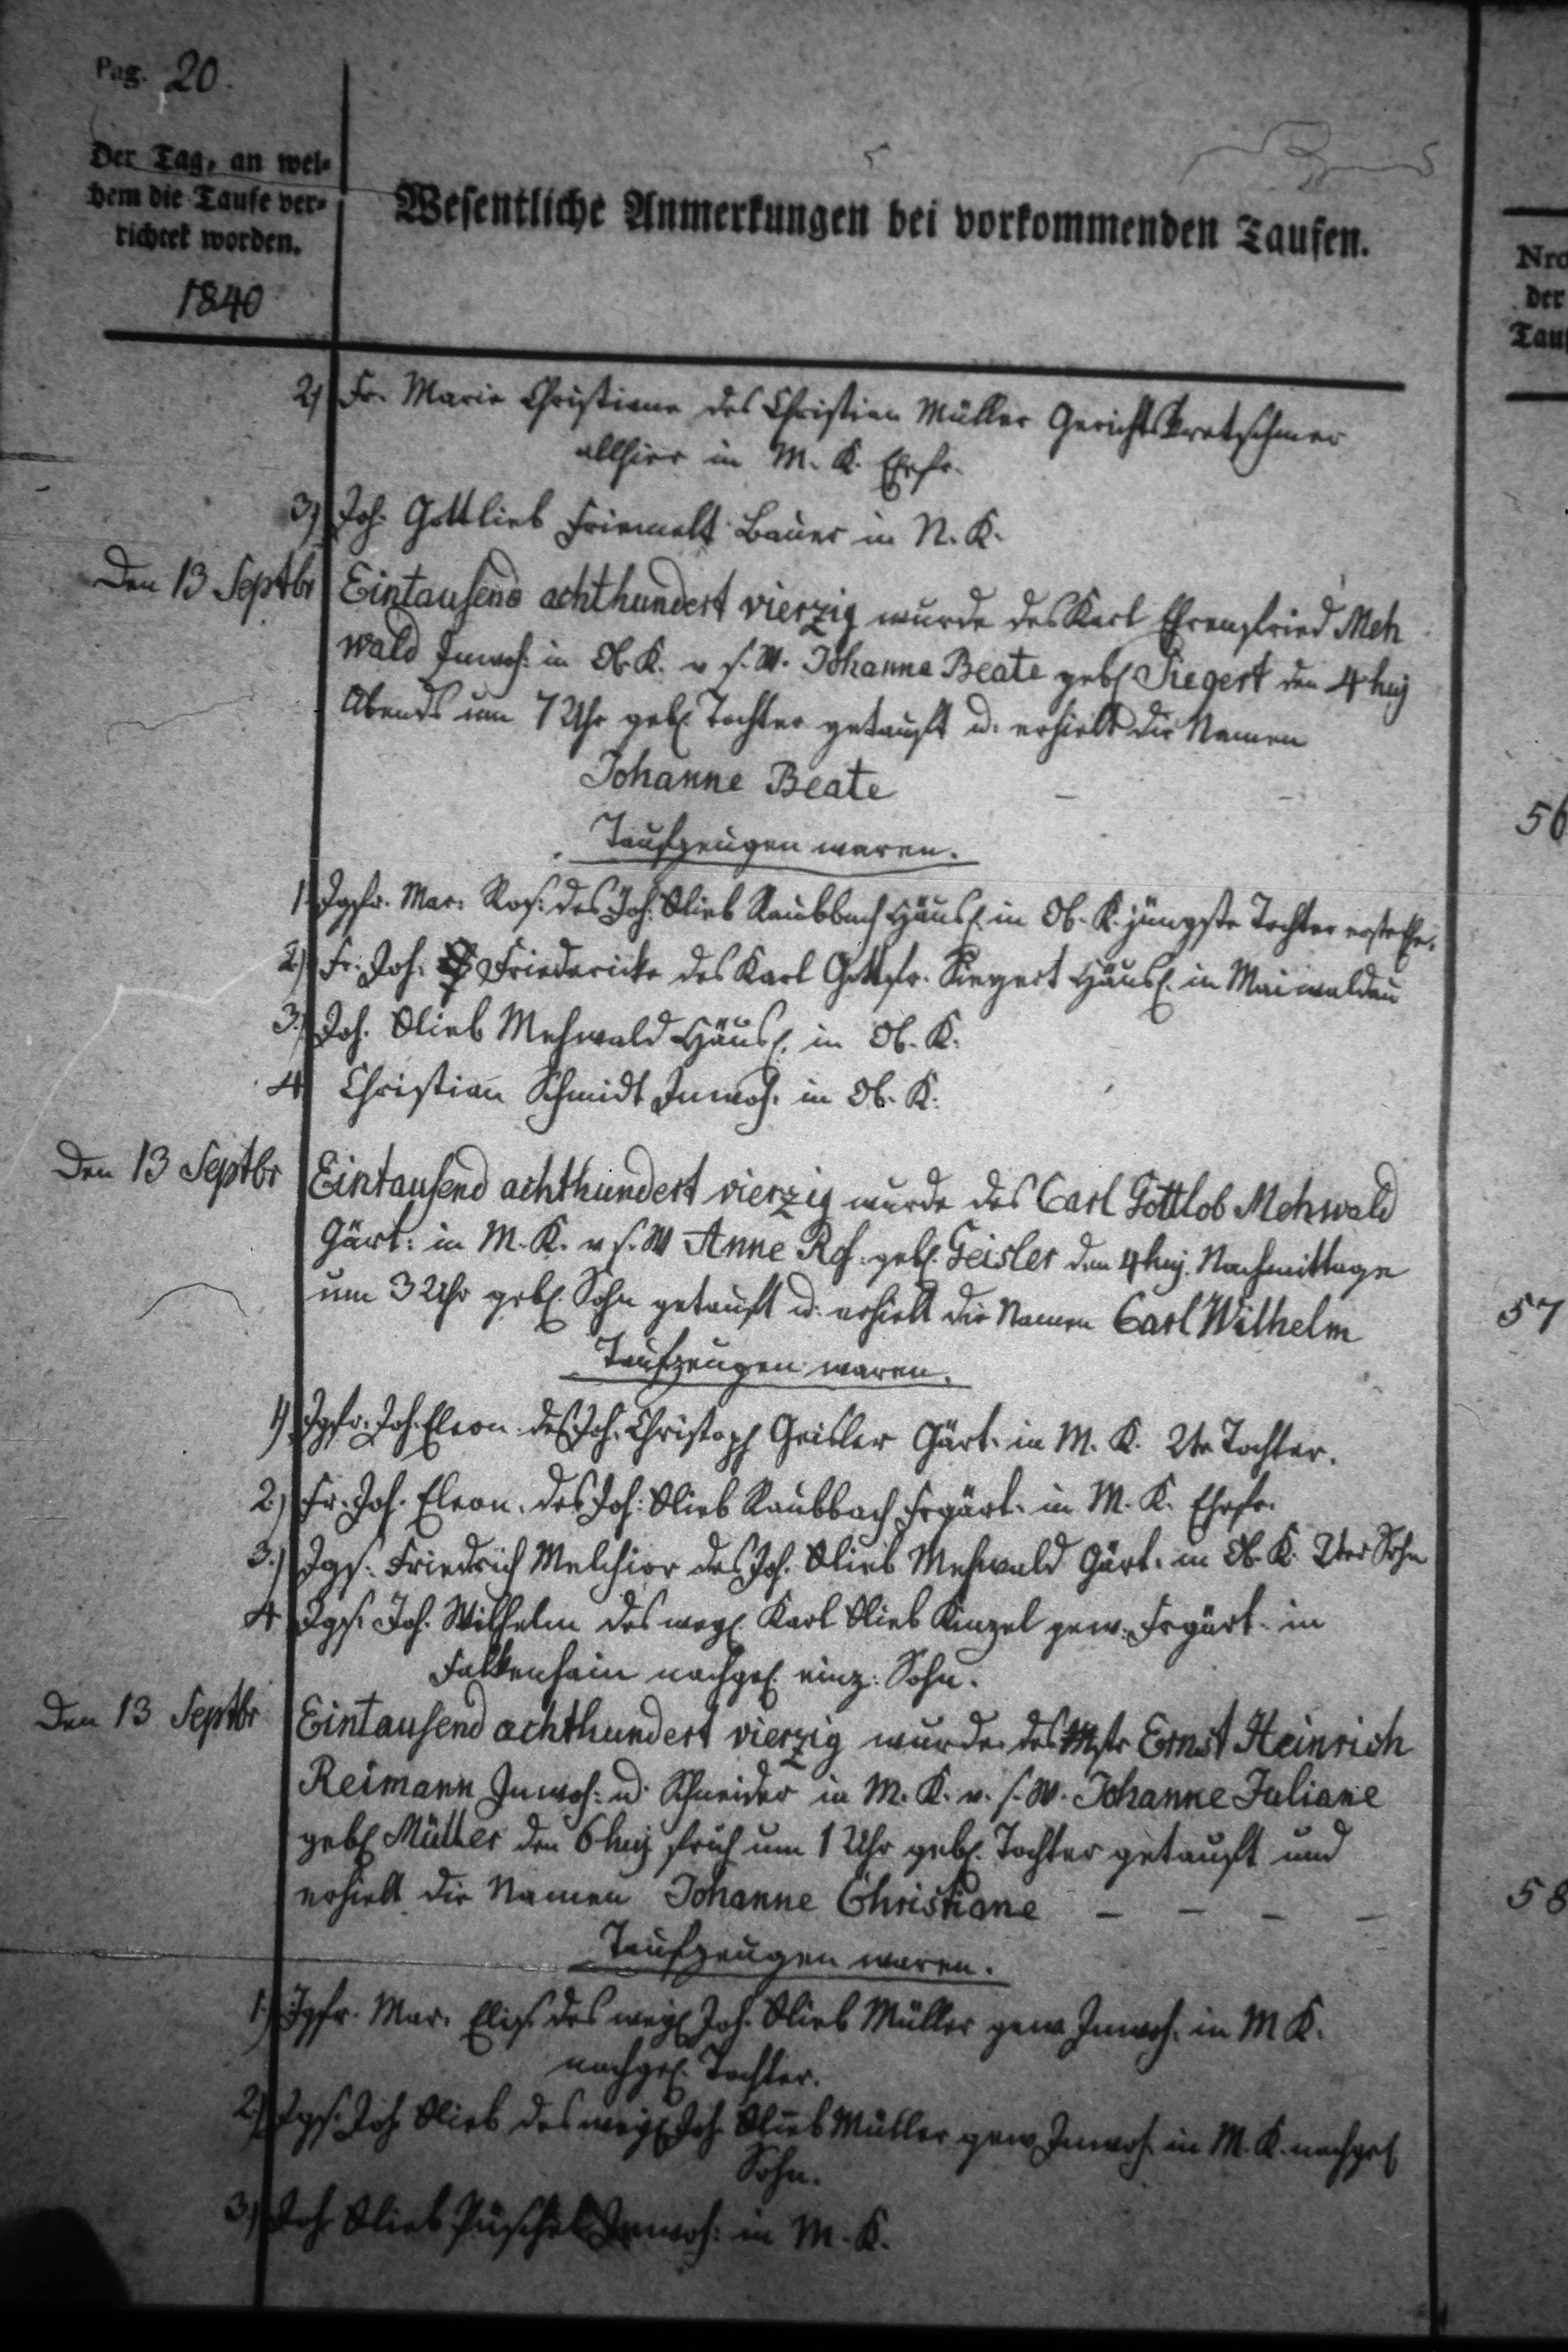 Pag. 20.
Der Tag, an wel-
chem die Taufe ver-
richtet worden.
1840
Wesentliche Anmerkungen bei vorkommenden Taufen.
Nro
der
Tau
2) Fr. Marie Christiane des Christian Müller Gerichtskretschmer
allhier in M. K. Ehefr.
3) Joh. Gottlieb Friemelt Bauer in N. K.
Den 13 Septbr Eintausend achthundert vierzig wurde des Karl Ehrenfried Meh
wald Inwoh: in Ob. K. v s. W. Johanna Beate geb. Siegert den 4 huj
Abends um 7 Uhr geb. Tochter getauft u. erhielt die Namen
Johanne Beate
56
Taufzeugen waren.
1 Jgfr. Mar. Ros: des Joh: Glieb Raubbach Häusl. in Ob. K. jüngste Tochter erste Ehe.
2) Fr. Joh: Friedericke des Karl Gottfr. Siegert Häusl. in Maiwaldau
3.) Joh. Glieb Mehwald Häusl. in Ob. K.
4 Christian Schmidt Inwoh. in Ob. K.
Den 13 Septbr Eintausend achthundert vierzig wurde des Carl Gottlob Mehwald
Gärt: in M. K. v s. W Anne Ros. geb. Geisler den 4 huj. Nachmittage
um 3 Uhr geb. Sohn getauft u. erhielt die Namen Carl Wilhelm
57
Taufzeugen waren.
1) Jgfr. Joh. Eleon. des Joh. Christoph Geisler Gärt. in M. K. 2te Tochter.
2.) Fr. Joh. Eleon. des Joh: Glieb Raubbach Frgärt. in M. K. Ehefr.
3.) Jgs. Friedrich Melchior des Joh. Glieb Mehwald Gärt. in Ob. K. 2ter Sohn
4 Jgs. Joh. Wilhelm des weyl. Karl Glieb Kinzel gew. Frgärt. in
Falkenhain nachgel. einz. Sohn.
Den 13 Septbr Eintausend achthundert vierzig wurde des Mstr Ernst Heinrich
Reimann Inwoh: u. Schneider in M. K. v. s. W. Johanne Juliane
geb. Müller den 6 huj früh um 1 Uhr geb. Tochter getauft und
erhielt die Namen Johanne Christiane – – – –
58
Taufzeugen waren.
1.) Jgfr. Mar. Elis. des weyl Joh. Glieb Müller gew Inwoh. in M K.
nachgel. Tochter.
2.) Jgs. Joh Glieb des weyl Joh Glieb Müller gew Inwoh. in M. K. nachgel
Sohn.
3) Joh Glieb Püschel Inwoh: in M. K.